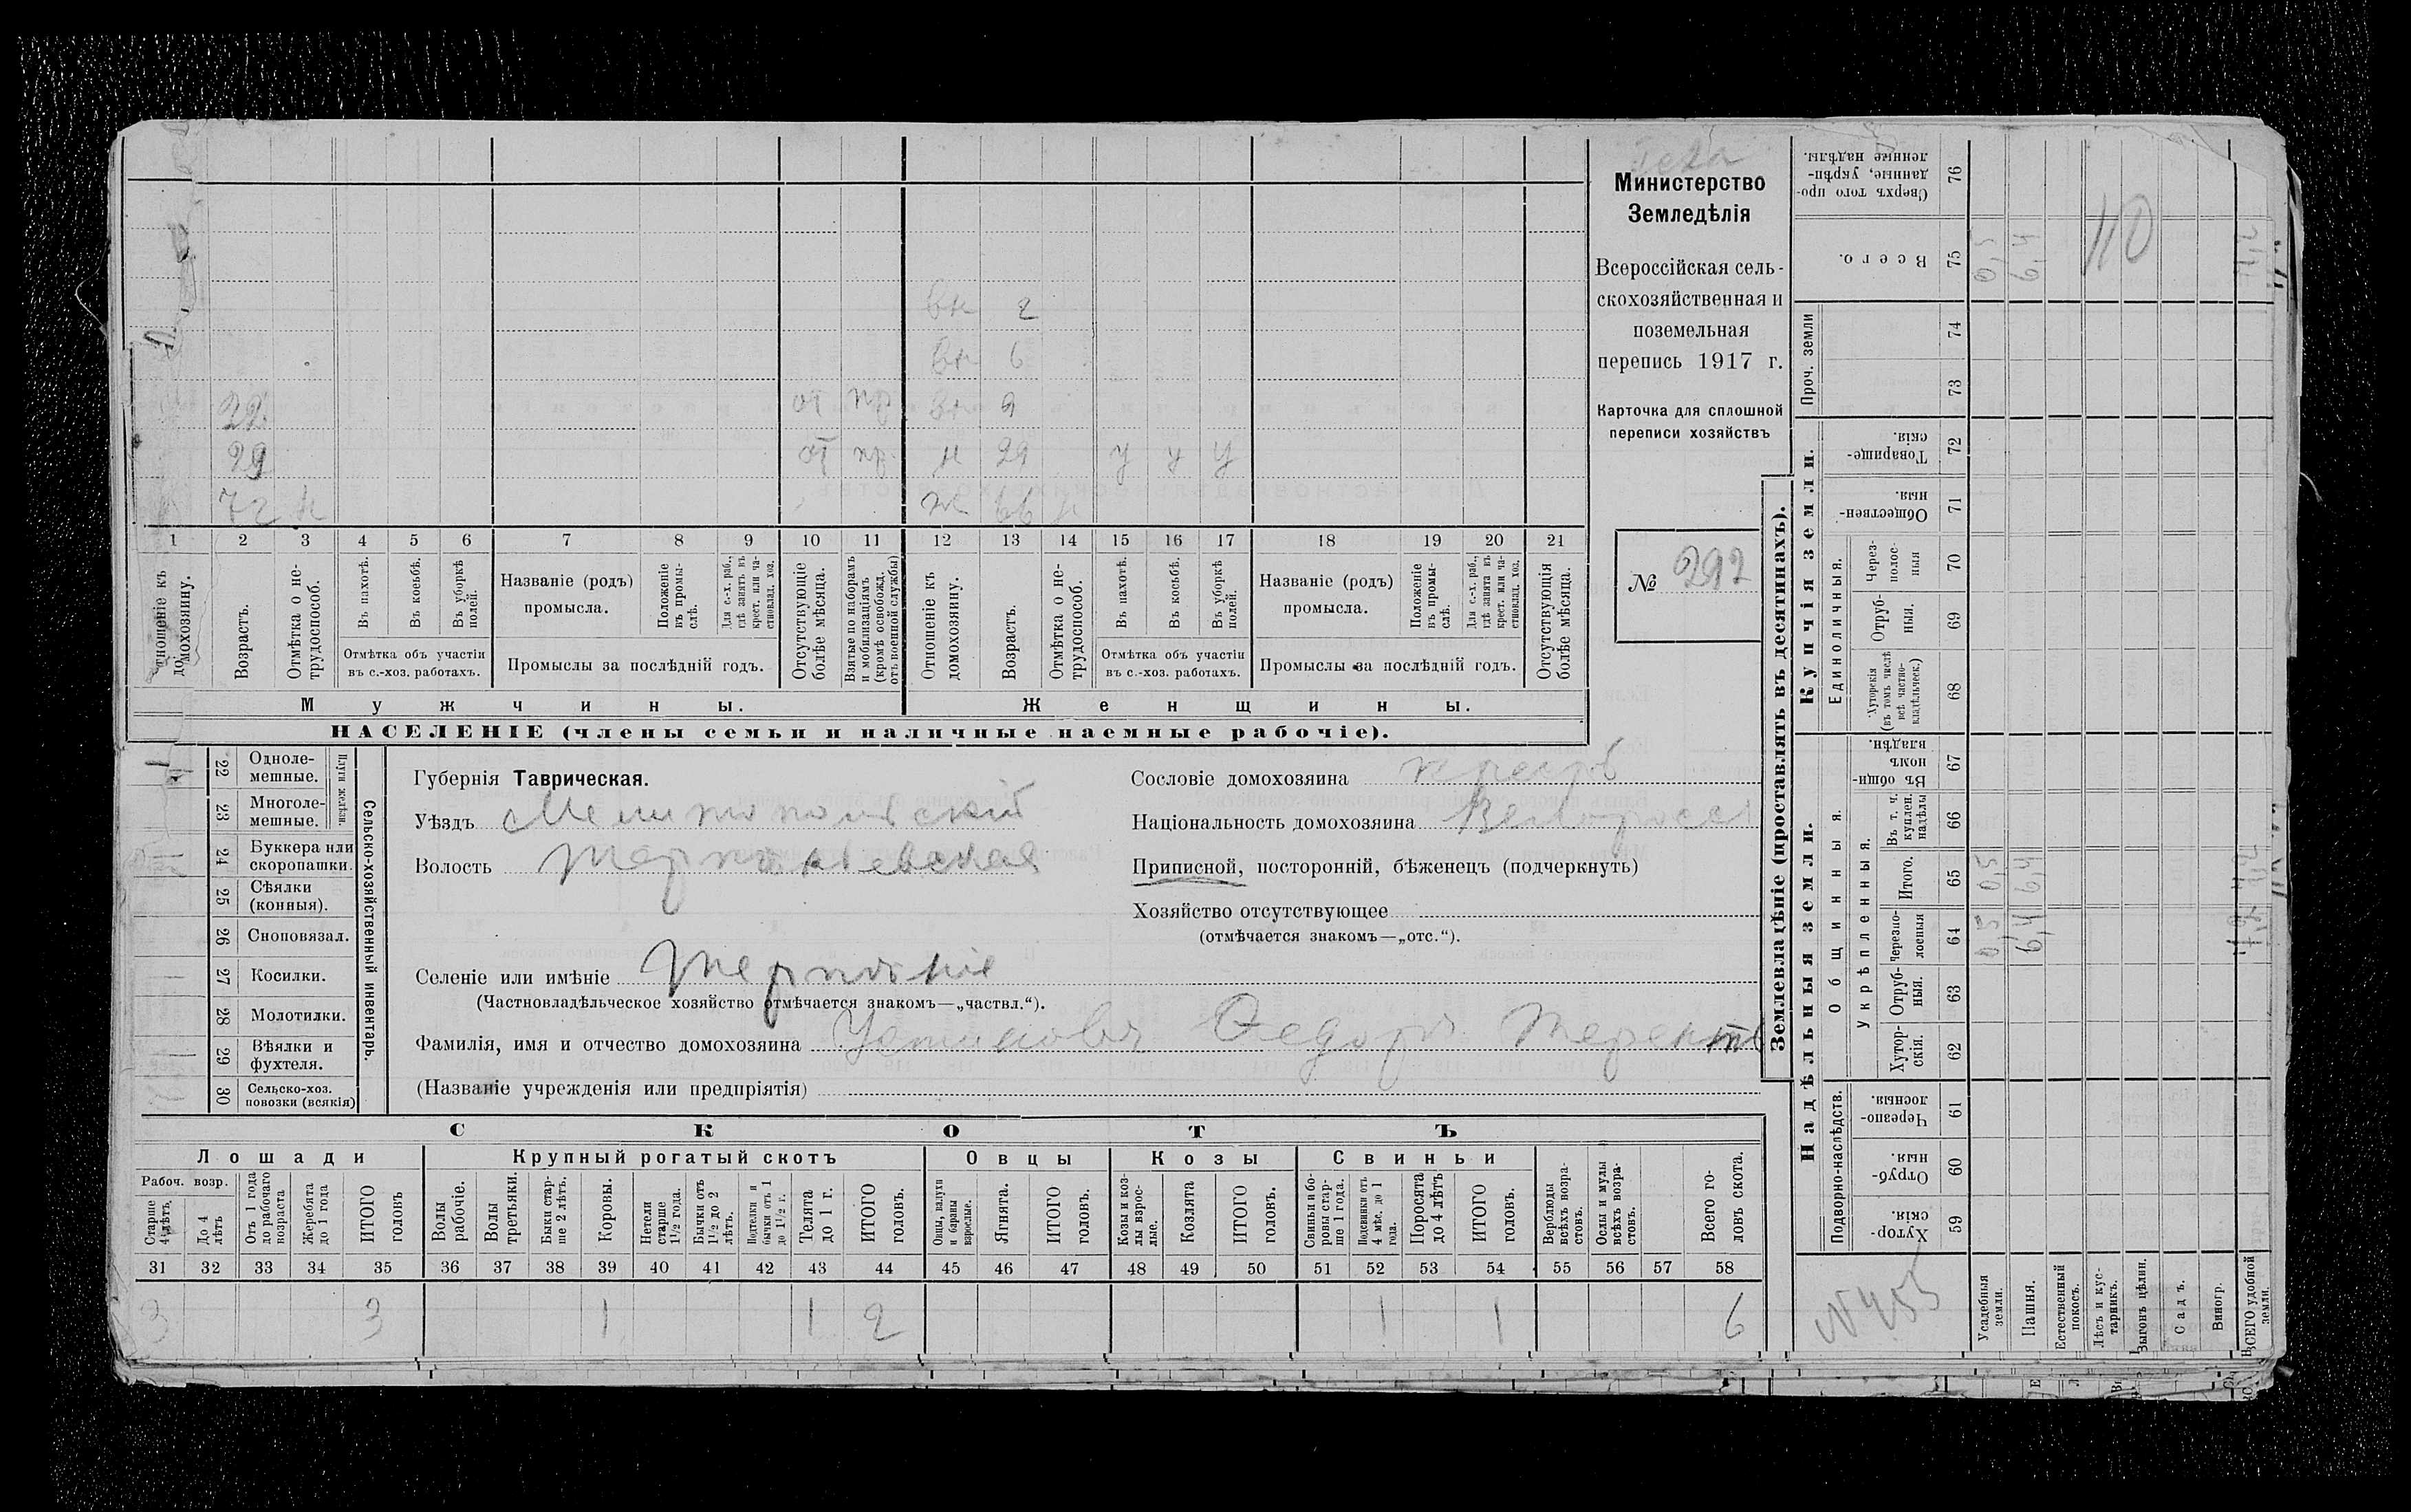 Министерство
Земледѣлія
Всероссійская сель-
скохозяйственная и
поземельная
перепись 1917 г.
Карточка для сплошной
переписи хозяйствъ
№ 292
вн 2
вн 6
22 от пр вн 9
29 от пр. н 29 у у у
72 н ж 66 н
1 2 3 4 5 6 7 8 9 10 11 12 13 14 15 16 17 18 19 20 21
тношеніе къ домохозяину.
Возрастъ.
Отмѣтка о не-трудоспособ.
Въ пахотѣ.
Въ косьбѣ.
Въ уборкѣ полей.
Отмѣтка объ участіи
въ с.-хоз. работахъ.
Названіе (родъ)
промысла.
Положеніе въ промы-слѣ.
Для с.-х. раб., гдѣ занятъ въ крест. или ча-стновлад. хоз.
Промыслы за послѣдній годъ.
Отсутствующіе болѣе мѣсяца.
Взятые по наборамъ и мобилизаціямъ (кромѣ освобожд. отъ военной службы)
Отношеніе къ домохозяину.
Возрастъ.
Отмѣтка о не-трудоспособ.
Въ пахотѣ.
Въ косьбѣ.
Въ уборкѣ полей.
Отмѣтка объ участіи
въ с.-хоз. работахъ.
Названіе (родъ)
промысла.
Положеніе въ промы-слѣ.
Для с.-х. раб., гдѣ занята въ крест. или ча-стновлад. хоз.
Промыслы за послѣдній годъ.
Отсутствующія болѣе мѣсяца.
Мужчины.
Женщины.
НАСЕЛЕНІЕ (члены семьи и наличные наемные рабочіе).
Сельско-хозяйственный инвентарь.
Плуги желѣзн.
22 Одноле-мешные. 1
23 Многоле-мешные.
24 Буккера или скоропашки.
25 Сѣялки (конныя).
26 Сноповязал.
27 Косилки.
28 Молотилки.
29 Вѣялки и фухтеля.
30 Сельско-хоз. повозки (всякія)
Губернія Таврическая.
Уѣздъ Мелитопольскій
Волость Терпѣніевская
Селеніе или имѣніе Терпѣніе
(Частновладѣльческое хозяйство отмѣчается знакомъ—„частвл.“).
Фамилія, имя и отчество домохозяина Устиновъ Федоръ Терент
(Названіе учрежденія или предпріятія)
Сословіе домохозяина крестъ
Національность домохозяина Великоросс
Приписной, посторонній, бѣженецъ (подчеркнуть)
Хозяйство отсутствующее
(отмѣчается знакомъ—„отс.“).
СКОТЪ
Лошади
Крупный рогатый скотъ
Овцы
Козы
Свиньи
Рабоч. возр.
Старше 4 лѣтъ.
До 4 лѣтъ
Отъ 1 года до рабочаго возраста
Жеребята до 1 года
ИТОГО головъ
Волы рабочіе.
Волы третьяки.
Быки стар-ше 2 лѣтъ.
Коровы.
Нетели старше 1½ года.
Бычки отъ 1½ до 2 лѣтъ.
Нетелки и бычки отъ 1 до 1½ г.
Телята до 1 г.
ИТОГО головъ.
Овцы, валухи и бараны взрослые.
Ягнята.
ИТОГО головъ.
Козы и коз-лы взрос-лые.
Козлята
ИТОГО головъ.
Свиньи и бо-ровы стар-ше 1 года.
Подсвинки отъ 4 мѣс. до 1 года.
Поросята до 4 лѣтъ
ИТОГО головъ.
Верблюды всѣхъ возра-стовъ.
Ослы и мулы всѣхъ возра-стовъ.
Всего го-ловъ скота.
31 32 33 34 35 36 37 38 39 40 41 42 43 44 45 46 47 48 49 50 51 52 53 54 55 56 57 58
3 3 1 1 2 1 1 6
Землевладѣніе (проставлять въ десятинахъ).
Надѣльныя земли.
Купчія земли.
Проч. земли
Подворно-наслѣдств.
Общинныя.
Укрѣпленныя.
Единоличныя.
Сверхъ того про-данные, укрѣп-ленные надѣлы. 76
Всего. 75 0,5 6,4
74
73
Товарище-скія. 72
Обществен-ныя. 71
Через-полос-ныя 70
Отруб-ныя. 69
Хуторскія (въ томъ числѣ всѣ частно-владѣльческ.) 68
Въ общин-номъ владѣн. 67
Въ т. ч. куплен. надѣлы 66
Итого. 65 0,5 6,4
Черезпо-лосныя 64 0,5 6,4
Отруб-ныя. 63
Хутор-скія. 62
Черезпо-лосныя. 61
Отруб-ныя. 60
Хутор-скія. 59
№ 455
Усадебныя земли.
Пашня.
Естественный покосъ.
Лѣсъ и кус-тарникъ.
Выгонъ цѣлин.
Садъ.
Виногр.
ВСЕГО удобной земли.